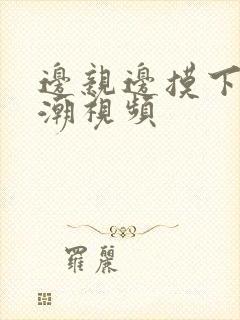 邊親邊摸下
潮視頻
羅麗